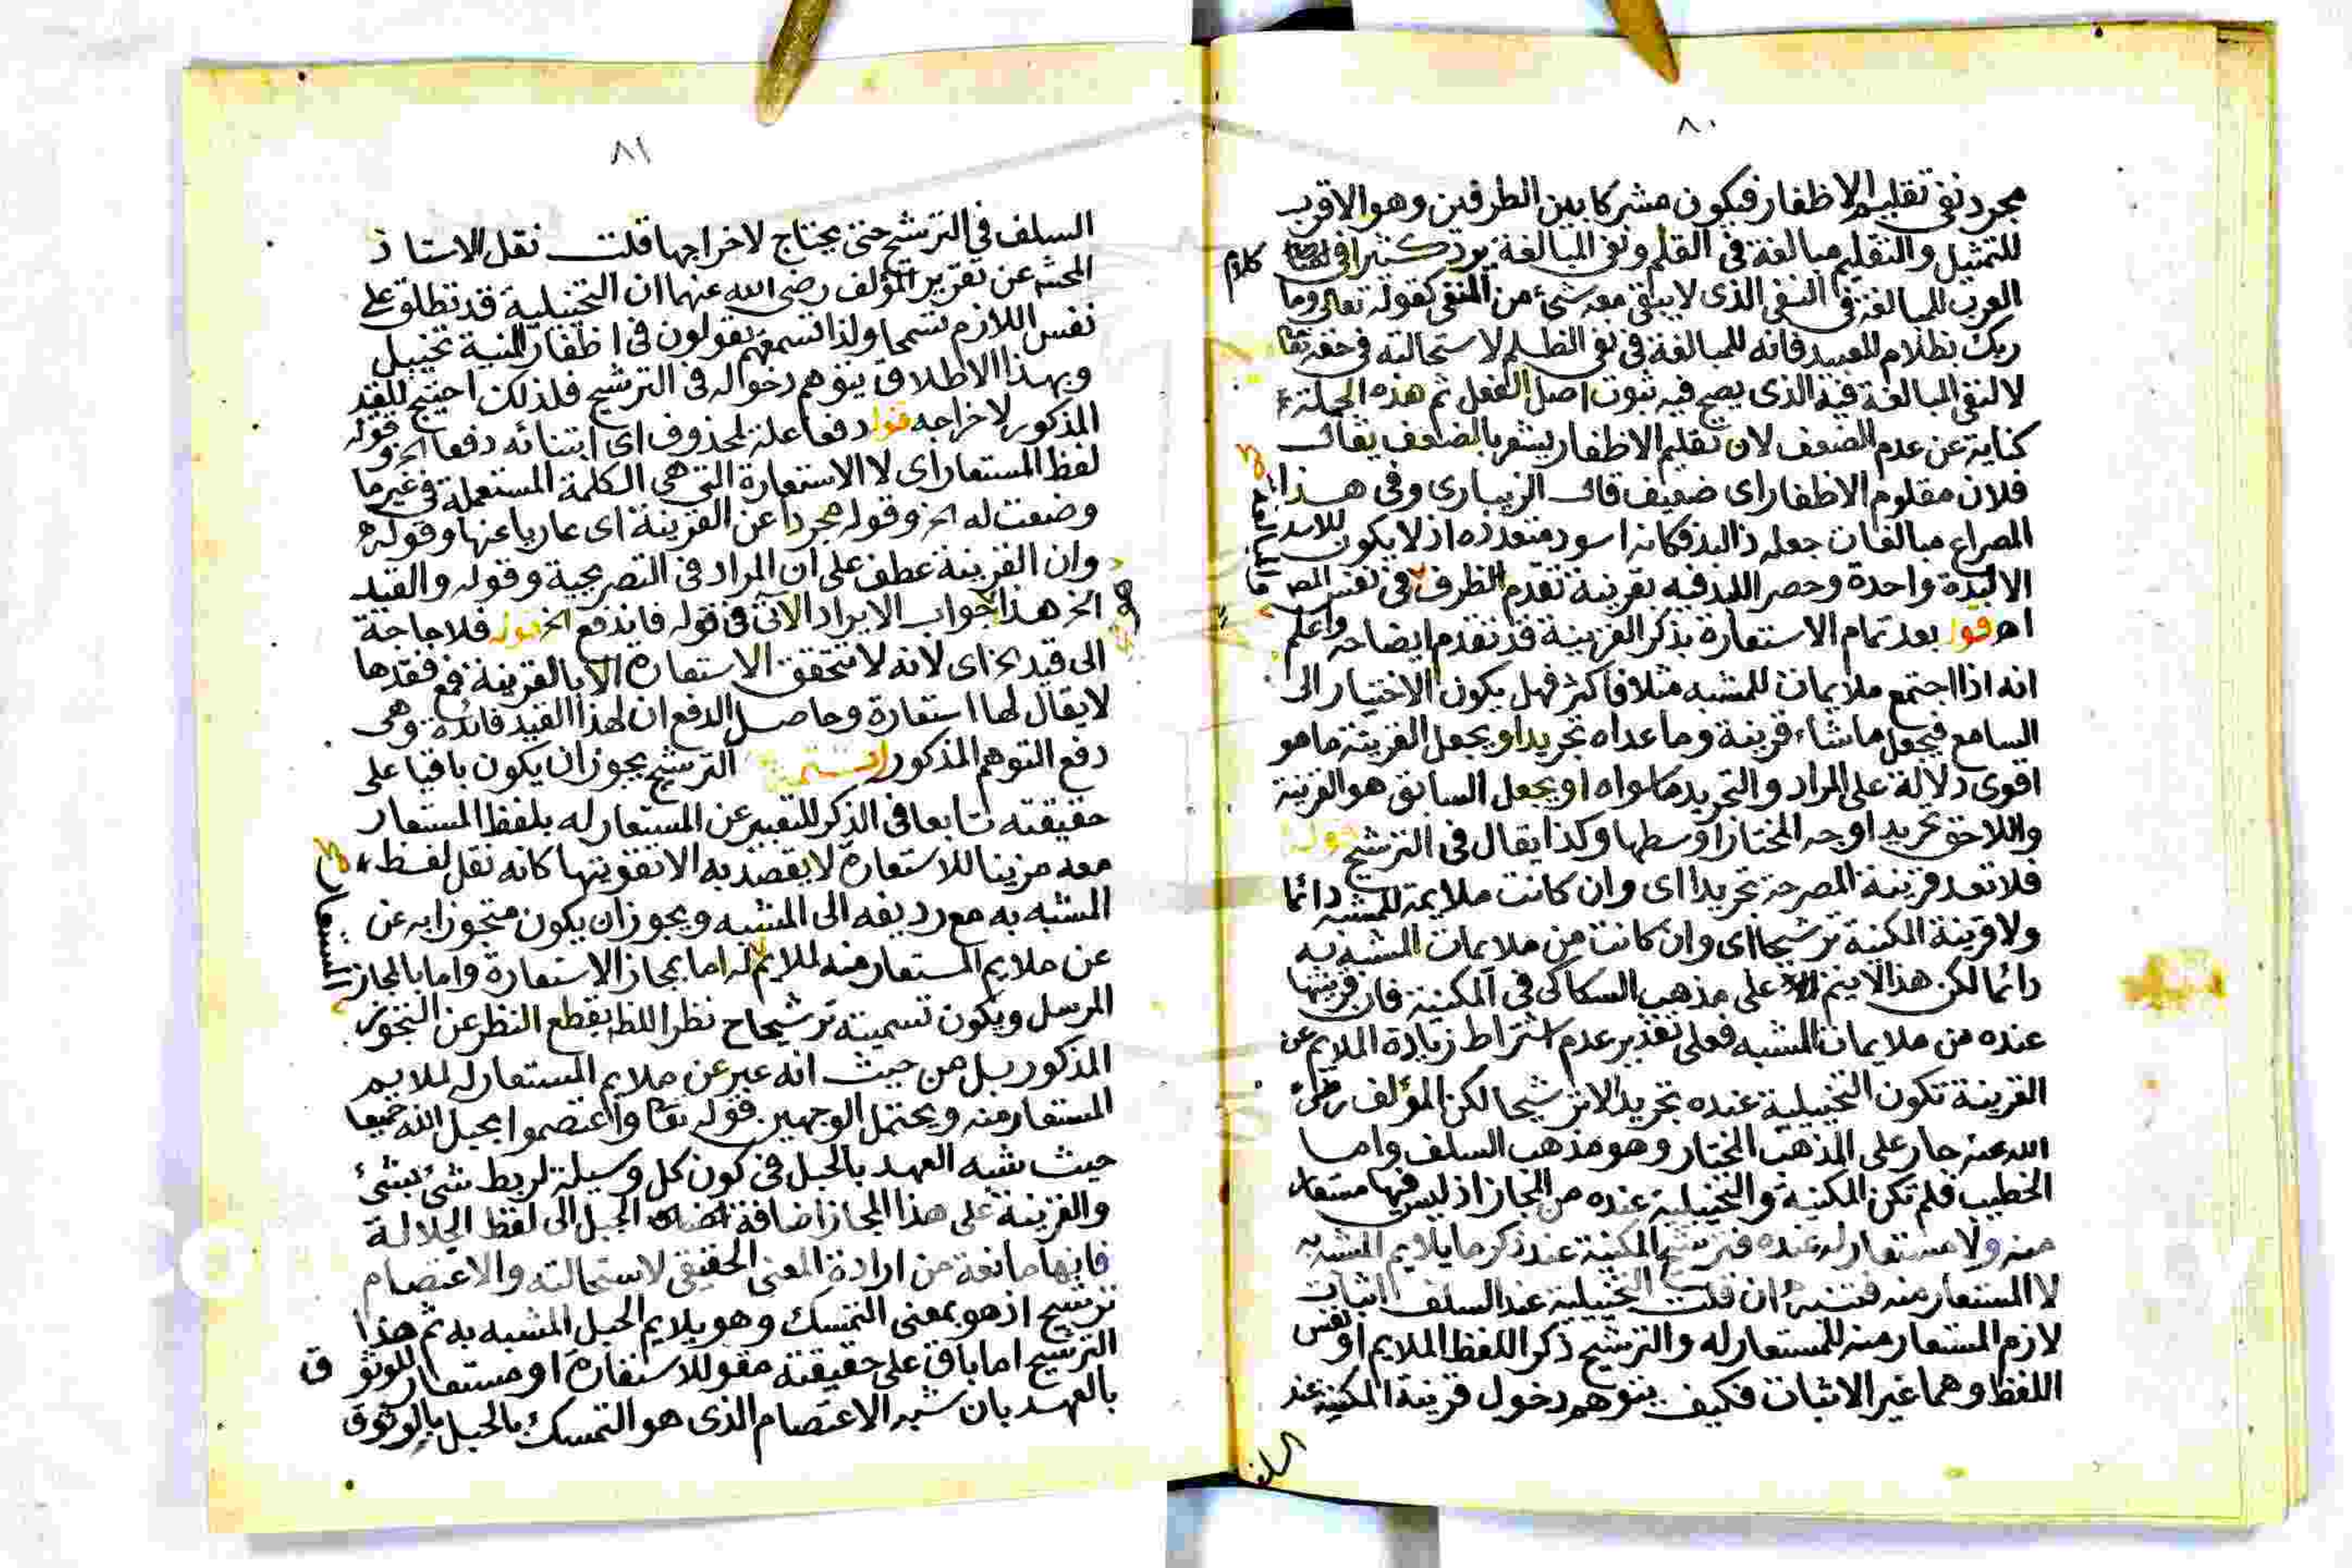 ٨٠
مجرد نفى تقليم الاظفار فيكون مشتركا بين الطرفين وهو الاقرب
للتمثيل والتقليم مبالغة فى القلم ونفى المبالغة يرد كثيرا فى كلام
العرب للمبالغة فى النفى الذى لا يبقى معه شئ من المنفى كقوله تعالى وما
ربك بظلام للعبيد فانه للمبالغة فى نفى الظلم لاستحالته فى حقه تعا
لا لنفى المبالغة فيه الذى يصح فيه ثبوت اصل الفعل ثم هذه الجملة
كناية عن عدم الضعف لان تقليم الاظفار يشعر بالضعف يقال
فلان مقلوم الاظفار اى ضعيف قال الزيبارى وفى هذا
المصراع مبالغات جعله ذا لبد فكانه اسود متعددة اذ لا يكون للاسد
الا لبدة واحدة وحصر اللبد فيه بقرينة تقدم الظرف فى نفس المص
اه قوله بعد تمام الاستعارة بذكر القرينة قد تقدم ايضاحه واعلم
انه اذا اجتمع ملايمات للمشبه مثلا فاكثر فهل يكون الاختيار الى
السامع فيجعل ما شاء قرينة وما عداه تجريدا او يجعل القرينة ما هو
اقوى دلالة على المراد والتجريد ما سواه او يجعل السابق هو القرينة
واللاحق تجريدا اوجه المختار اوسطها وكذا يقال فى الترشيح قوله
فلا تعد قرينة المصرحة تجريدا اى وان كانت ملايمة للمشبه دائما
ولا قرينة المكنية ترشيحا اى وان كانت من ملايمات المشبه به
دائما لكن هذا لا يتم على مذهب السكاكى فى المكنية فان قرينتها
عنده من ملايمات المشبه فعلى تقدير عدم اشتراط زيادة الملايم عن
القرينة تكون التخييلية عنده تجريدا لا ترشيحا لكن المؤلف رضى
الله عنه جار على المذهب المختار وهو مذهب السلف واما
الخطيب فلم تكن المكنية والتخييلية عنده من المجاز اذ ليس فيها مستعار
منه ولا مستعار له عنده فترشيح المكنية عند ذكر ما يلايم المشبه به
لا المستعار منه فتنبه ان قلت التخييلية عند السلف اثبات
لازم المستعار منه للمستعار له والترشيح ذكر اللفظ الملايم او نفس
اللفظ وهما غير الاثبات فكيف يتوهم دخول قرينة المكنية عند
السلف
٨١
السلف فى الترشيح حتى يحتاج لاخراجها قلت نقل الاستاذ
المحشى عن تقرير المؤلف رضى الله عنهما ان التخييلية قد تطلق على
نفس اللازم تسمحا ولذا تسمعهم يقولون فى اظفار المنية تخييل
وبهذا الاطلاق يتوهم دخوله فى الترشيح فلذلك احتيج للقيد
المذكور لاخراجه قوله دفعا علة لمحذوف اى ابتنائه دفعا الخ وقوله
لفظ المستعار اى لا الاستعارة التى هى الكلمة المستعملة فى غير ما
وضعت له الخ وقوله مجردا عن القرينة اى عاريا عنها وقوله
وان القرينة عطف على ان المراد فى التصريحية وقوله والقيد
الخ هذا جواب الايراد الآتى فى قوله فاندفع الخ قوله فلا حاجة
الى قيد الخ اى لانه لا تتحقق الاستعارة الا بالقرينة فمع فقدها
لا يقال لها استعارة وحاصل الدفع ان لهذا القيد فائدة وهى
دفع التوهم المذكور الترشيح يجوز ان يكون باقيا على
حقيقته تابعا فى الذكر للتعبير عن المستعار له بلفظ المستعار
معه مزينا للاستعارة لا يقصد به الا تقويتها كانه نقل لفظ
المشبه به مع رديفه الى المشبه ويجوز ان يكون متجوزا به عن
عن ملايم المستعار منه لملايم له اما بمجاز الاستعارة واما بالمجاز
المرسل ويكون تسميته ترشيحا ح نظرا للظ بقطع النظر عن التجوز
المذكور بل من حيث انه عبر عن ملايم المستعار له لملايم
المستعار منه ويحتمل الوجهين قوله تعا واعتصموا بحبل الله جميعا
حيث شبه العهد بالحبل فى كون كل وسيلة لربط شئ بشئ
والقرينة على هذا المجاز اضافة الحبل الى لفظ الجلالة
فانها مانعة من ارادة المعنى الحقيقى لاستحالته والاعتصام
ترشيح اذ هو بمعنى التمسك وهو يلايم الحبل المشبه به ثم هذا
الترشيح اما باق على حقيقته مقو للاستعارة او مستعار للوثوق
بالعهد بان شبه الاعتصام الذى هو التمسك بالحبل بالوثوق